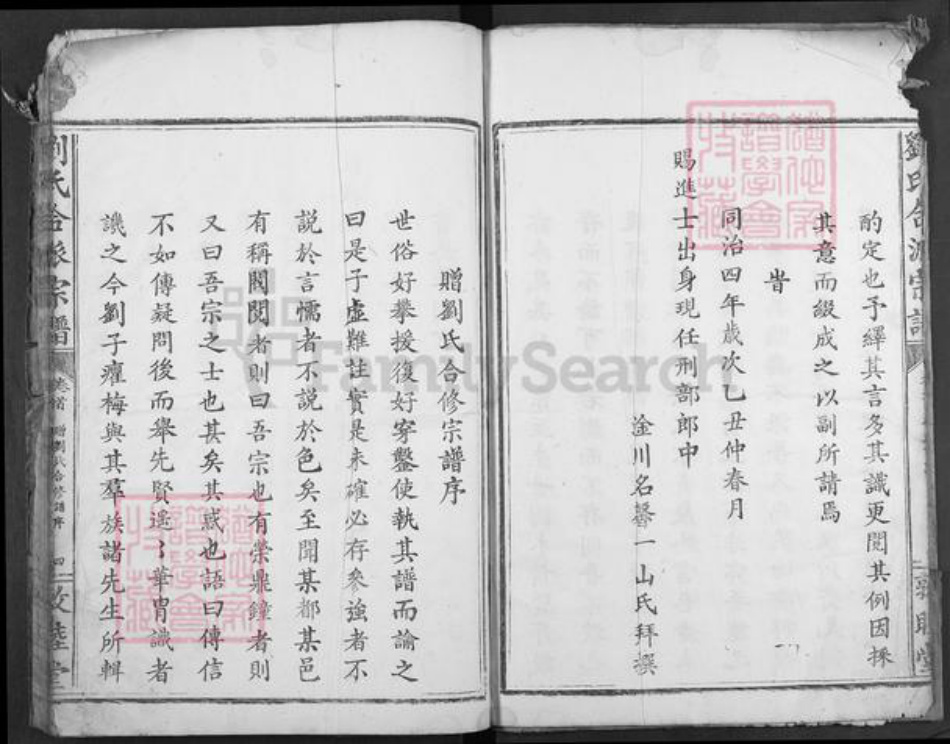 酌定也予繹其言多其識更閱其例因採
其意而綴成之以副所請焉
旹
同治四年歲次乙丑仲春月
賜進士出身現任刑部郎中
淦川名馨一山氏拜撰
贈劉氏合修宗譜序
世俗好攀援復好穿鑿使執其譜而論之
曰是子虛難註實是未確必存參強者不
説於言懦者不説於色矣至聞某都某邑
有稱閥閱者則曰吾宗也有榮鼎鐘者則
又曰吾宗之士也甚矣其惑也語曰傳信
不如傳疑問後而舉先賢遥〻華胄識者
譏之今劉子癯梅與其羣族諸先生所輯
劉氏合派宗譜
卷首
贈劉氏合修譜序
四
敦睦堂
FamilySearch